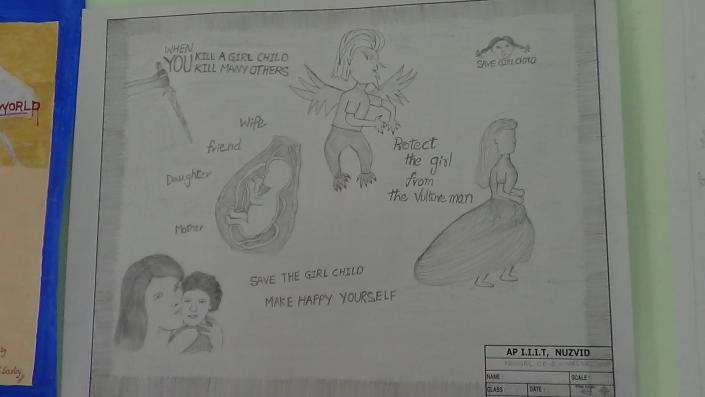 WHEN
YOU KILL A GIRL CHILD
KILL MANY OTHERS
SAVE GIRL CHILD
Wife
friend
Daughter
Mother
Protect
the girl
from
the Vulture man
SAVE THE GIRL CHILD
MAKE HAPPY YOURSELF
WORLD
by
AP I.I.I.T, NUZVID
NAME :
SCALE :
CLASS :
DATE :